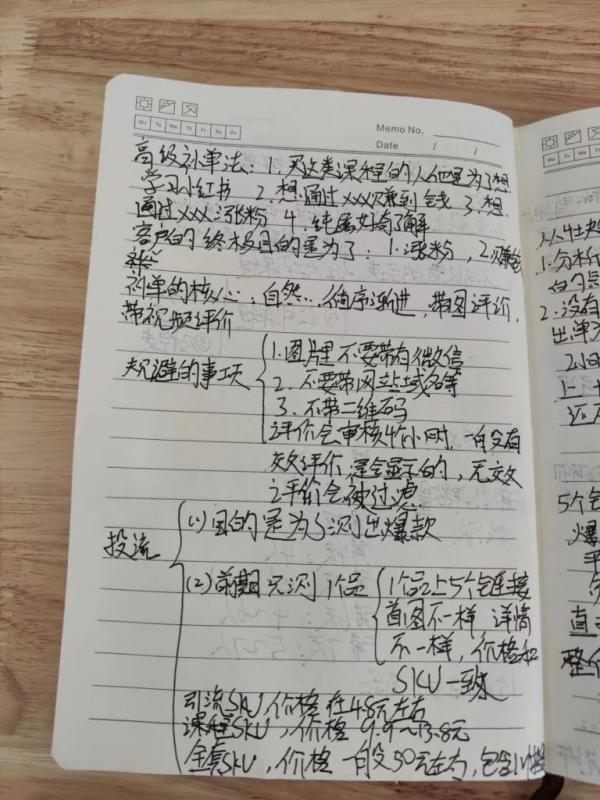 Mo Tu We Th Fr Sa Su
Memo No.
Date / /
高级补单法：1. 买这类课程的人他是为了想
学习小红书 2. 想通过xxx赚到钱 3. 想
通过xxx涨粉 4. 纯属好奇了解
客户的终极目的是为了：1. 涨粉，2. 赚钱
补单的核心：自然...循序渐进，带图评价，
带视频评价
规避的事项
1. 图片里不要带有微信
2. 不要带网站域名等
3. 不带二维码
评价会审核4个小时，一般没有
效评价是会显示的，无效
评价会被过滤
投流
(1) 目的是为了测出爆款
(2) 前期只测1个品
1个品上5个链接
首图不一样 详情
不一样，价格和
SKU一致
引流SKU，价格在4.8元左右
课程SKU，价格 9.9~13.8元
全套SKU，价格一般30元左右，包含
从
1. 分析
2. 没有
出单
上
还
5个
爆
直
整个